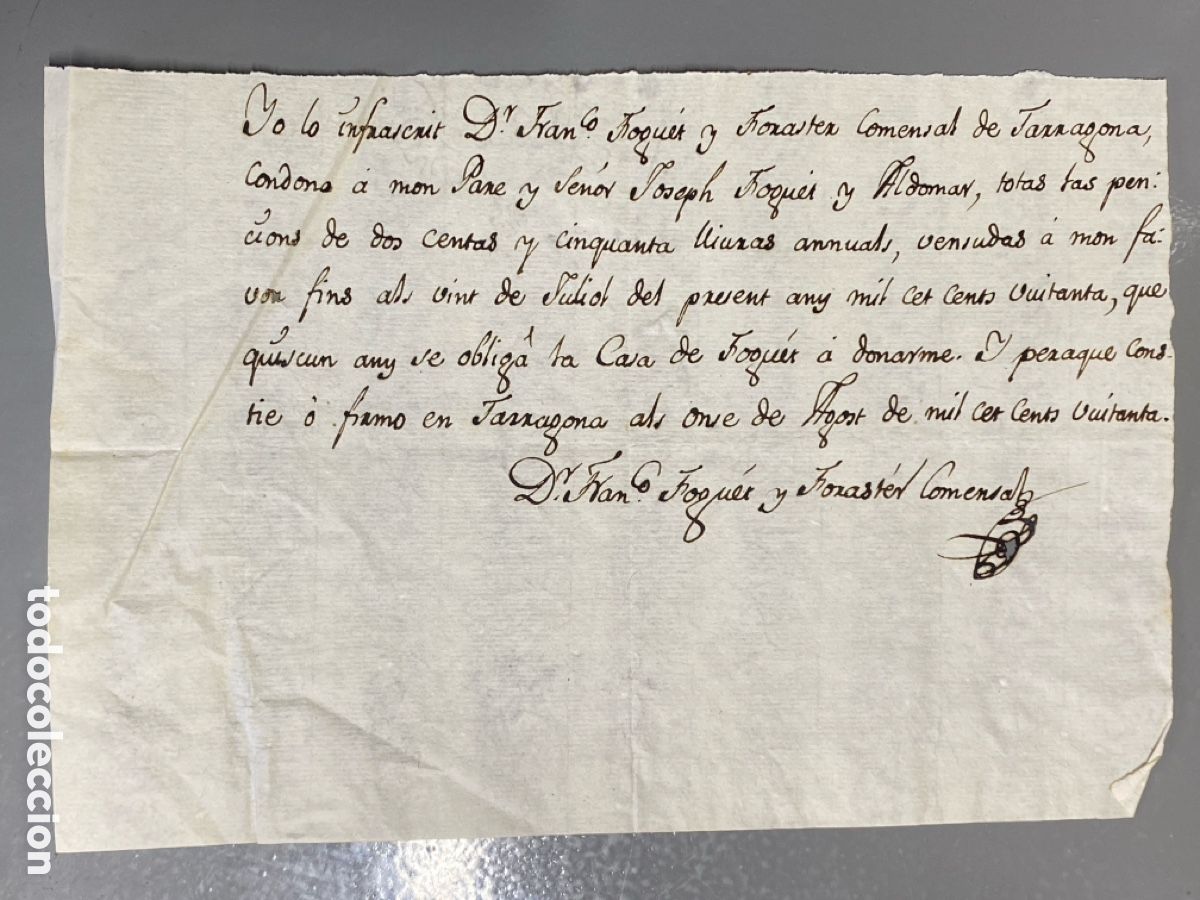 Yo lo infrascrit Dr. Franco. Foguét y Foraster Comensal de Tarragona,
Condono á mon Pare y Señór Joseph Foguét y Aldomar, totas las pen-
cions de dos centas y cinquanta lliuras annuals, vensudas á mon fa-
vor fins als vint de Juliol del present any mil cet cents vuitanta, que
quiscun any se obligá la Casa de Foguét á donarme. Y peraque cons-
tie ó firmo en Tarragona als onse de Agost de mil cet cents vuitanta.
Dr. Franco. Foguét y Forastér Comensal
todocoleccion